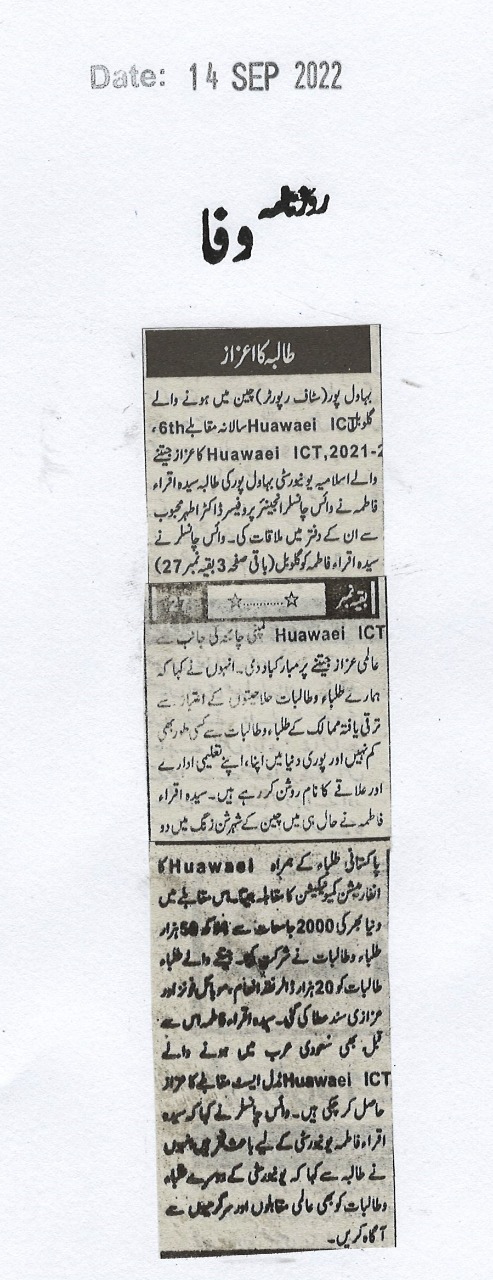 Date: 14 SEP 2022
روزنامہ
وفا
طالبہ کا اعزاز
بہاول پور (سٹاف رپورٹر) چین میں ہونے والے
گلوبل Huawaei ICT سالانہ مقابلے 6th،
Huawaei ICT,2021-2 کا عزاز جیتنے
والے اسلامیہ یونیورسٹی بہاول پور کی طالبہ سیدہ اقراء
فاطمہ نے وائس چانسلر انجینئر پروفیسر ڈاکٹر اطہر محبوب
سے ان کے دفتر میں ملاقات کی۔ وائس چانسلر نے
سیدہ اقراء فاطمہ کو گلوبل (باقی صفحہ 3 بقیہ نمبر 27)
بقیہ نمبر ☆............☆ 27
Huawaei ICT کمپنی چائنہ کی جانب سے
عالمی عزاز جیتنے پر مبارکباد دی۔ انہوں نے کہا کہ
ہمارے طلباء وطالبات صلاحیتوں کے اعتبار سے
ترقی یافتہ ممالک کے طلباء وطالبات سے کسی طور بھی
کم نہیں اور پوری دنیا میں اپنا، اپنے تعلیمی ادارے
اور علاقے کا نام روشن کر رہے ہیں۔ سیدہ اقراء
فاطمہ نے حال ہی میں چین کے شہر شن زنگ میں دو
پاکستانی طلباء کے ہمراہ Huawaei کا
انفارمیشن کمیونیکیشن کا مقابلہ جیتا۔ اس مقابلے میں
دنیا بھر کی 2000 جامعات سے 1 لاکھ 50 ہزار
طلباء وطالبات نے شرکت کی۔ جیتنے والے طلباء
طالبات کو 20 ہزار ڈالر نقد انعام، موبائل فونز اور
عزازی سند عطا کی گئی۔ سیدہ اقراء فاطمہ اس سے
قبل بھی سعودی عرب میں ہونے والے
Huawaei ICT مڈل ایسٹ مقابلے کا عزاز
حاصل کر چکی ہیں۔ وائس چانسلر نے کہا کہ سیدہ
اقراء فاطمہ یونیورسٹی کے لیے باعث فخر ہیں انہوں
نے طالبہ سے کہا کہ یونیورسٹی کے دوسرے طلباء
وطالبات کو بھی عالمی مقابلوں اور سرگرمیوں سے
آگاہ کریں۔